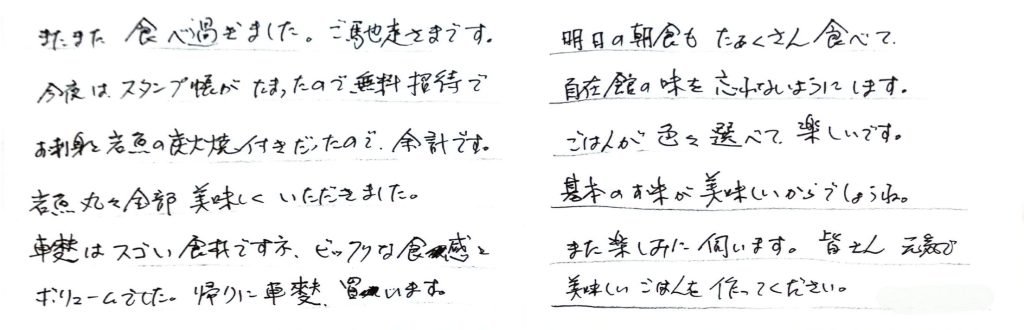 またまた 食べ過ぎました。ご馳走さまです。
今夜は、スタンプ帳が たまったので 無料 招待で
お刺身と 岩魚の炭火焼付きだったので、余計です。
岩魚 丸々全部 美味しく いただきました。
車麩は スゴい 食材ですネ、ビックリな食感と
ボリュームでした。帰りに 車麩、買います。
明日の朝食も たぁくさん 食べて、
自在館の味を 忘れないようにします。
ごはんが 色々 選べて、楽しいです。
基本のお味が 美味しいからでしょうね。
また楽しみに 伺います。皆さん 元気で
美味しい ごはんを 作ってください。